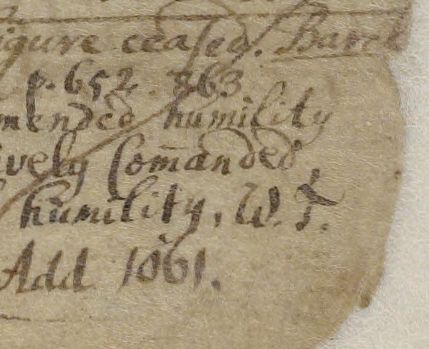 igure ceased. Barcl
p. 652. 863
mended humility
ively Com̄anded,
humility, W. T.
Add 1061.